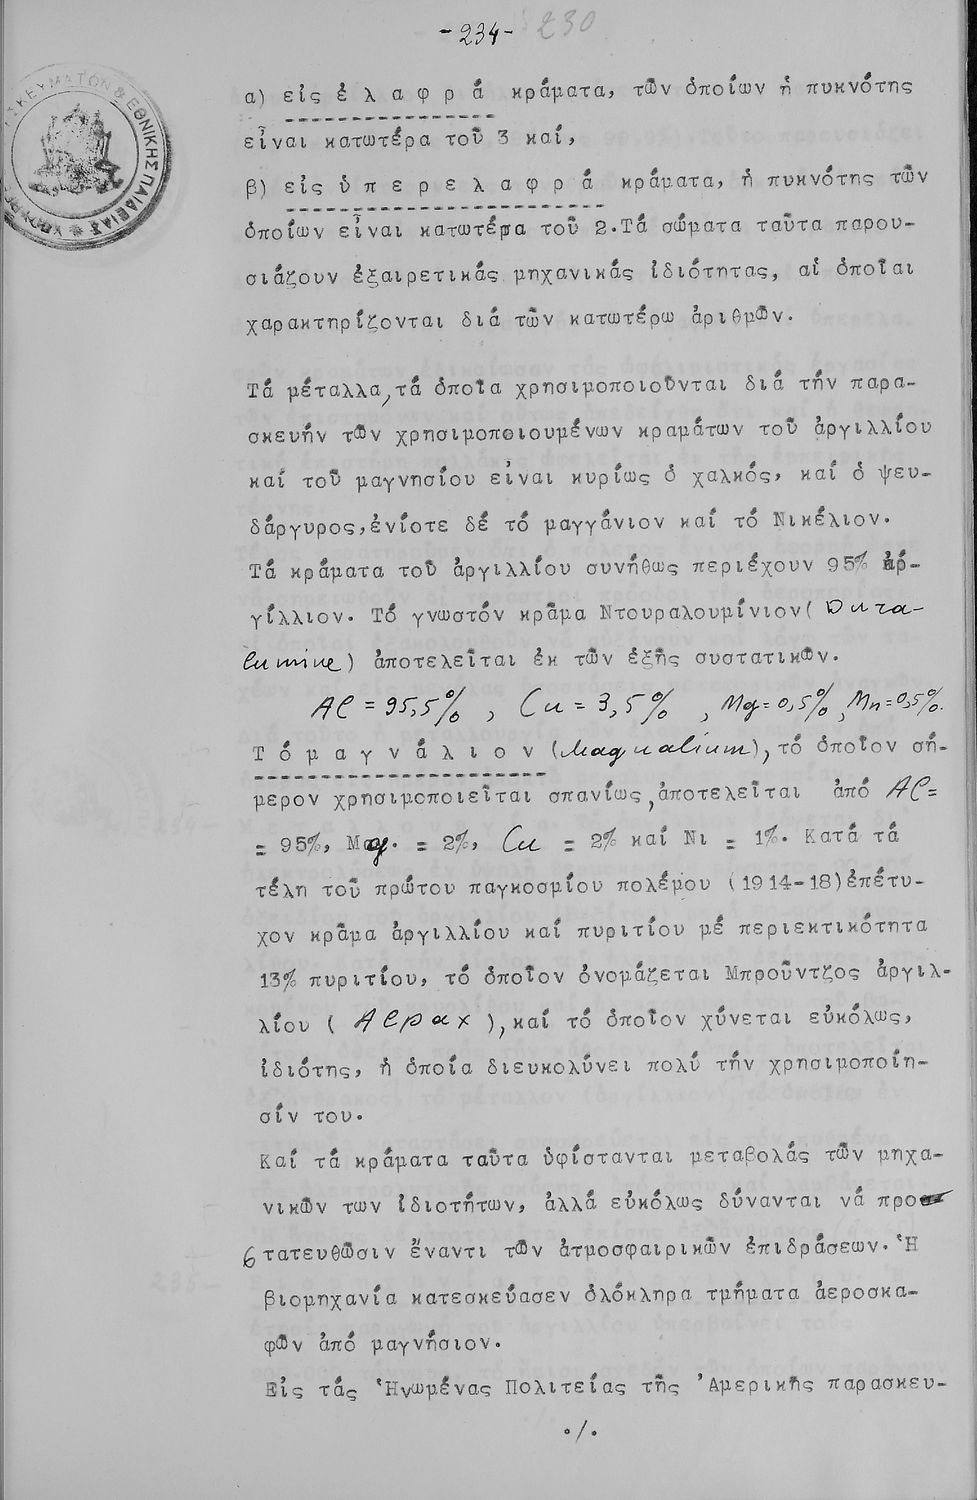 -234- 230
ΘΡΗΣΚΕΥΜΑΤΩΝ & ΕΘΝΙΚΗΣ ΠΑΙΔΕΙΑΣ
α) εἰς ἐ λ α φ ρ ά κράματα, τῶν ὁποίων ἡ πυκνότης
εἶναι κατωτέρα τοῦ 3 καί,
β) εἰς ὑ π ε ρ ε λ α φ ρ ά κράματα, ἡ πυκνότης τῶν
ὁποίων εἶναι κατωτέρα τοῦ 2.Τά σώματα ταῦτα παρου-
σιάζουν ἐξαιρετικάς μηχανικάς ἰδιότητας, αἱ ὁποῖαι
χαρακτηρίζονται διά τῶν κατωτέρω ἀριθμῶν.
Τά μέταλλα, τά ὁποῖα χρησιμοποιοῦνται διά τήν παρα-
σκευήν τῶν χρησιμοποιουμένων κραμάτων τοῦ ἀργιλλίου
καί τοῦ μαγνησίου εἶναι κυρίως ὁ χαλκός, καί ὁ ψευ-
δάργυρος,ἐνίοτε δέ τό μαγγάνιον καί τό Νικέλιον.
Τά κράματα τοῦ ἀργιλλίου συνήθως περιέχουν 95% ἀρ-
γίλλιον. Τό γνωστόν κρᾶμα Ντουραλουμίνιον( Dura-
lumine) ἀποτελεῖται ἐκ τῶν ἑξῆς συστατικῶν.
Al = 95,5% , Cu = 3,5% , Mg=0,5%, Mn=0,5%.
Τ ό μ α γ ν ά λ ι ο ν (Magnalium), τό ὁποῖον σή-
μερον χρησιμοποιεῖται σπανίως, ἀποτελεῖται ἀπό Al=
= 95%, Mg. = 2%, Cu = 2% καί Νι = 1%. Κατά τά
τέλη τοῦ πρώτου παγκοσμίου πολέμου (1914-18)ἐπέτυ-
χον κρᾶμα ἀργιλλίου καί πυριτίου μέ περιεκτικότητα
13% πυριτίου, τό ὁποῖον ὀνομάζεται Μπροῦντζος ἀργιλ-
λίου ( Alpax ), καί τό ὁποῖον χύνεται εὐκόλως,
ἰδιότης, ἡ ὁποία διευκολύνει πολύ τήν χρησιμοποίη-
σίν του.
Καί τά κράματα ταῦτα ὑφίστανται μεταβολάς τῶν μηχα-
νικῶν των ἰδιοτήτων, ἀλλά εὐκόλως δύνανται νά προ
στατευθῶσιν ἔναντι τῶν ἀτμοσφαιρικῶν ἐπιδράσεων. Ἡ
βιομηχανία κατεσκεύασεν ὁλόκληρα τμήματα ἀεροσκα-
φῶν ἀπό μαγνήσιον.
Εἰς τάς Ἡνωμένας Πολιτείας τῆς Ἀμερικῆς παρασκευ-
./.